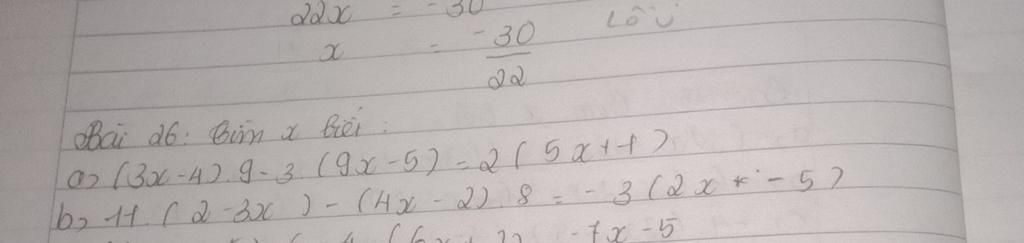 22x = -30
x = -30/22 Lỗi
Bài 26: Tìm x biết:
a) (3x-4).9-3(9x-5)=2(5x+1)
b) 11.(2-3x)-(4x-2).8=-3(2x-5)
-7x-5